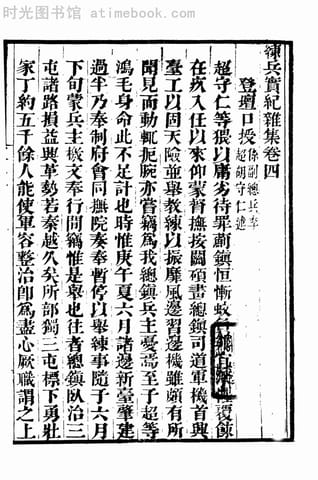 时光图书馆 atimebook.com
練兵實紀雜集卷四
登壇口授 係副總兵李超胡守仁述
超守仁等猥以庸劣待罪薊鎮恒慚蚊覆餗
在疚入任以來仰蒙督撫按關碩畫總鎮司道軍機首興
臺工以固天險並舉教練以振靡風邊習邊機雖頗有所
聞見而動輒扼腕亦嘗竊爲我總鎮兵主憂焉至于超等
鴻毛身命此不足計也時惟庚午夏六月諸邊新臺肇建
過半乃奉制府會同撫院奏奉暫停以舉練事隨于六月
下旬蒙兵主檄文奉行間竊惟是舉也往者總鎮臥治三
屯諸路損益興革勢若秦越久矣所部獨三屯標下勇壯
家丁約五千餘人能使軍容整治卽爲盡心厥職謂之上
时光图书馆 atimebook.com